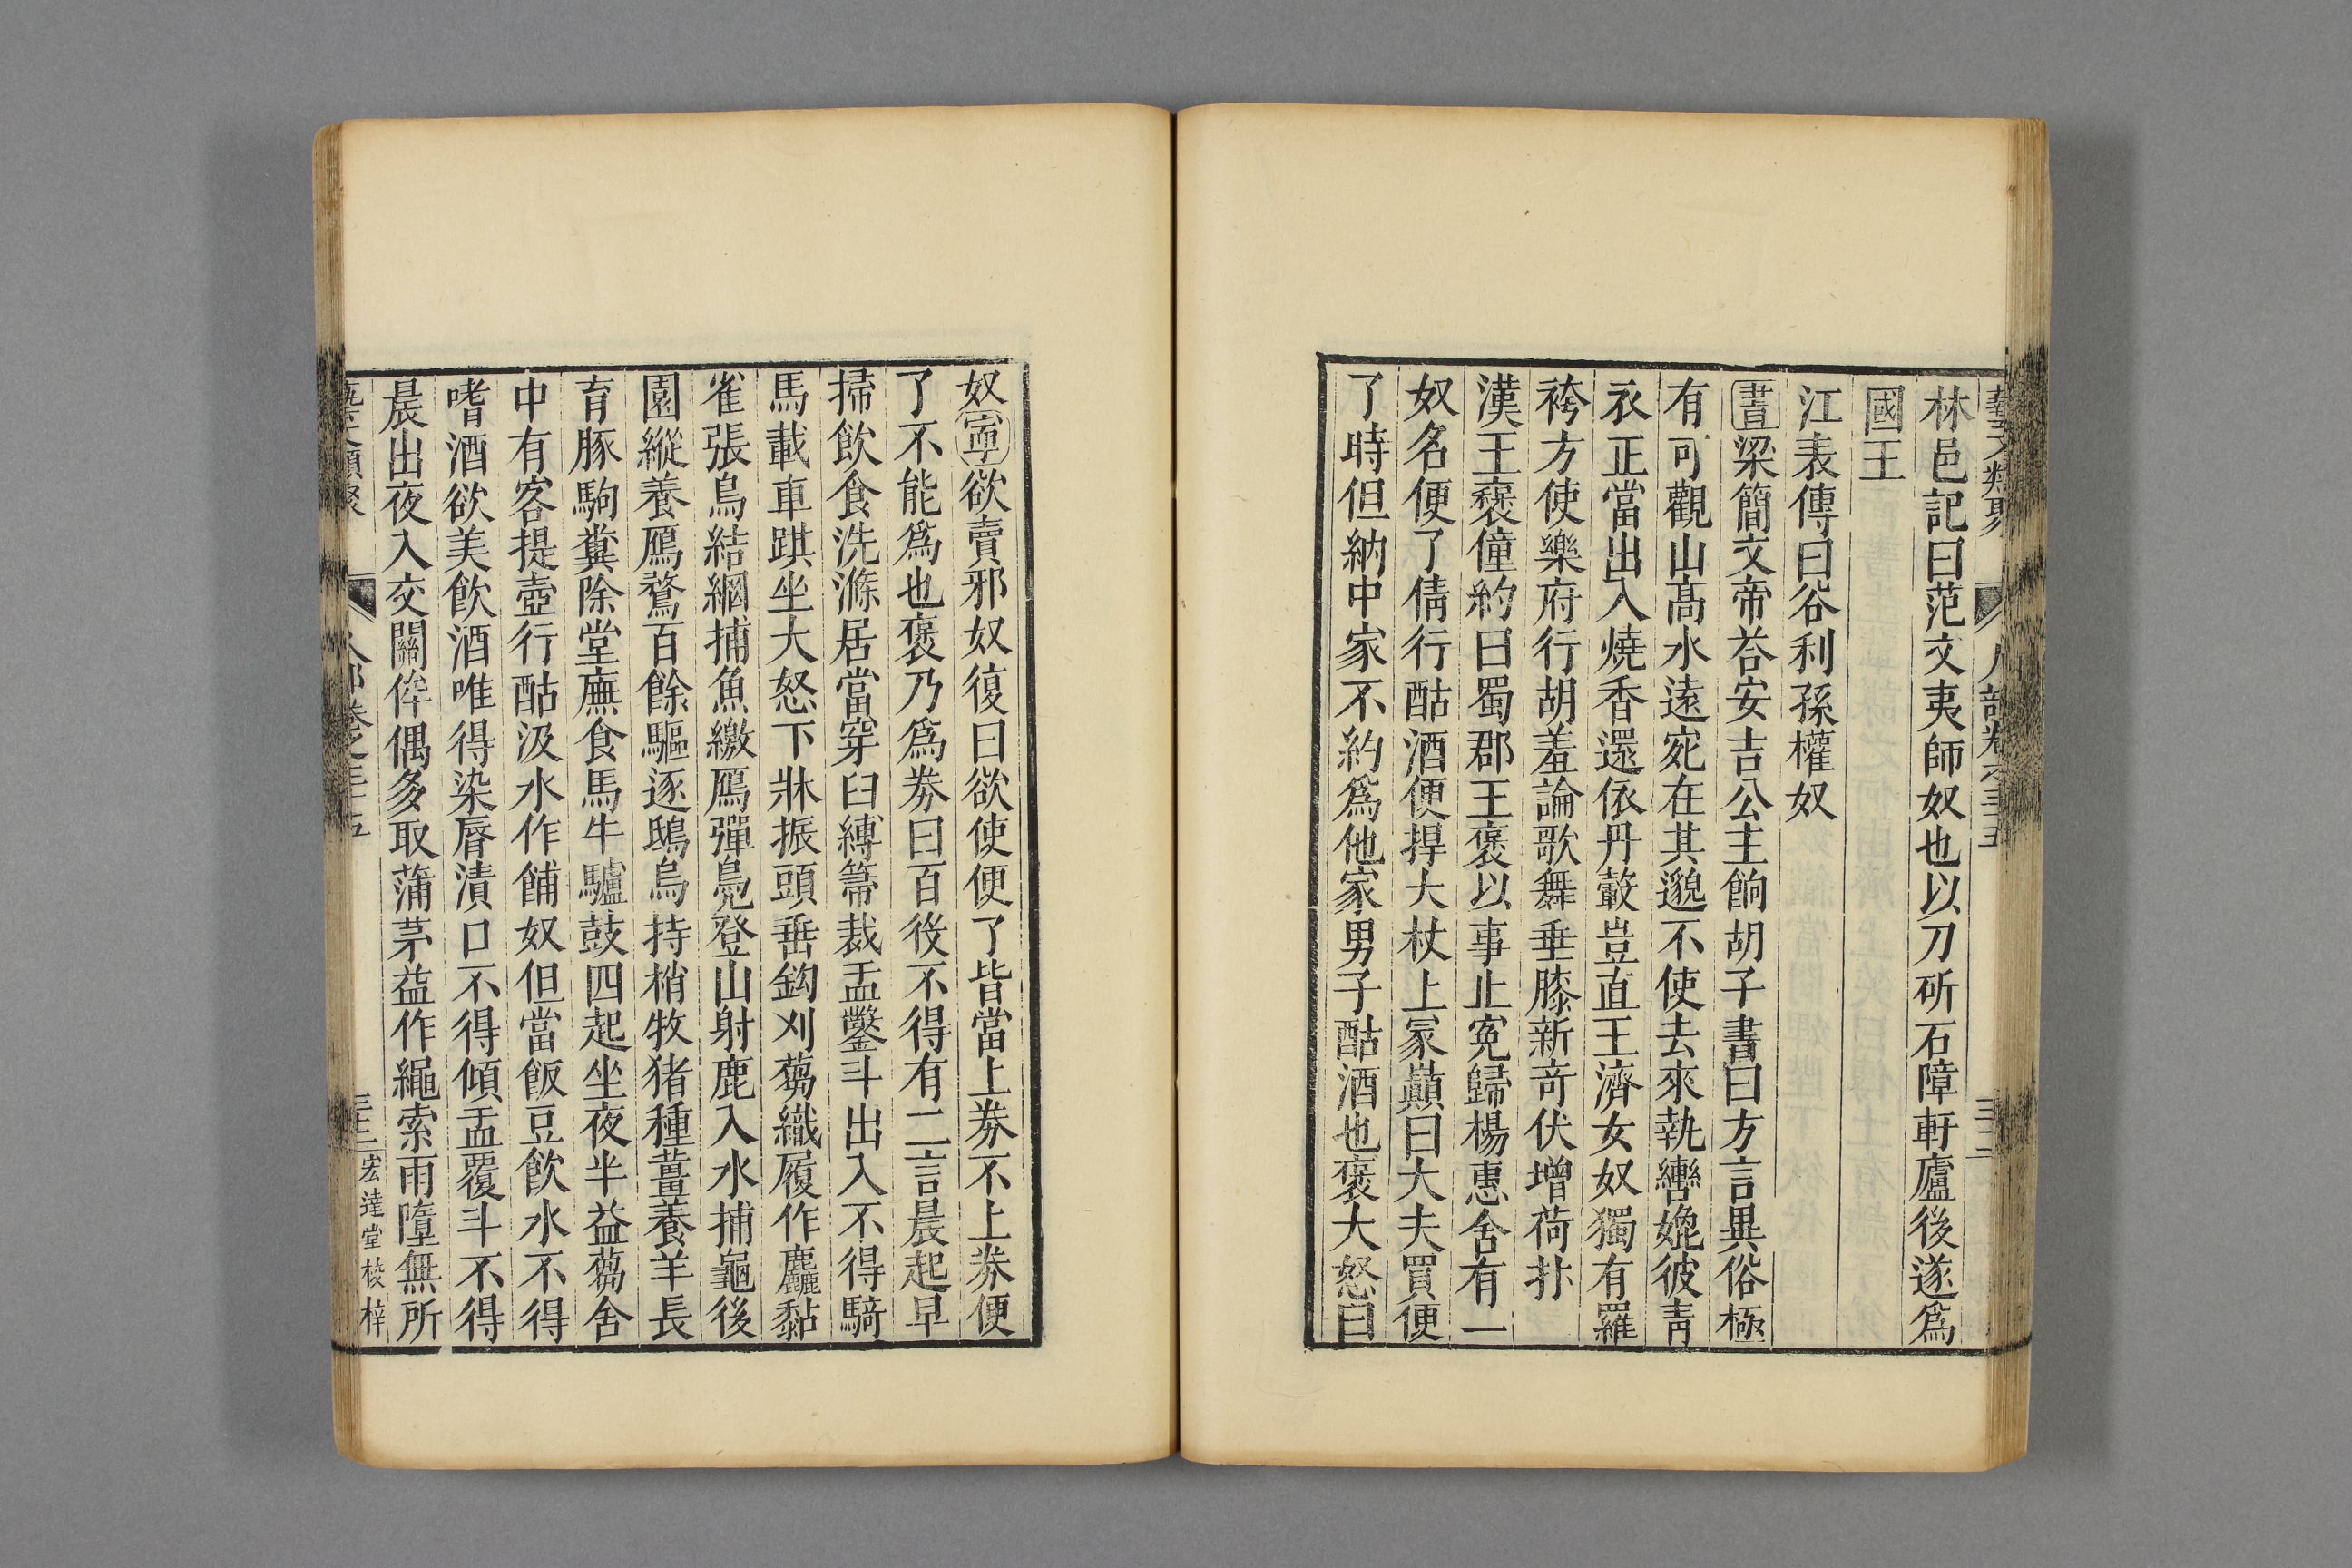 藝文類聚 人部卷之三十五 三十二
林邑記曰范文夷師奴也以刀斫石障軒廬後遂爲
國王
江表傳曰谷利孫權奴
書梁簡文帝荅安吉公主餉胡子書曰方言異俗極
有可觀山高水遠宛在其邈不使去來執轡媿彼青
衣正當出入燒香還依丹轂豈直王濟女奴獨有羅
袴方使樂府行胡羞論歌舞垂膝新奇伏增荷抃
漢王襃僮約曰蜀郡王褒以事止寃歸楊惠舍有一
奴名便了倩行酤酒便捍大杖上冢巔曰大夫買便
了時但約中家不約爲他家男子酤酒也褒大怒曰
奴寧欲賣邪奴復曰欲使便了皆當上券不上券便
了不能爲也褒乃爲券曰百役不得有二言晨起早
掃飲食洗滌居當穿臼縛箒裁盂鑿斗出入不得騎
馬載車踑坐大怒下牀振頭垂鈎刈蒭織履作麤黏
雀張鳥結網捕魚繳鴈彈鳧登山射鹿入水捕龜後
園縱養鴈鶩百餘驅逐鴟烏持梢牧猪種薑養羊長
育豚駒糞除堂廡食馬牛驢鼓四起坐夜半益蒭舍
中有客提壺行酤汲水作餔奴但當飯豆飲水不得
嗜酒欲美飲酒唯得染脣漬口不得傾盂覆斗不得
晨出夜入交關侔偶多取蒲茅益作繩索雨墮無所
藝文類聚 人部卷之三十五 三十二 宏達堂校梓